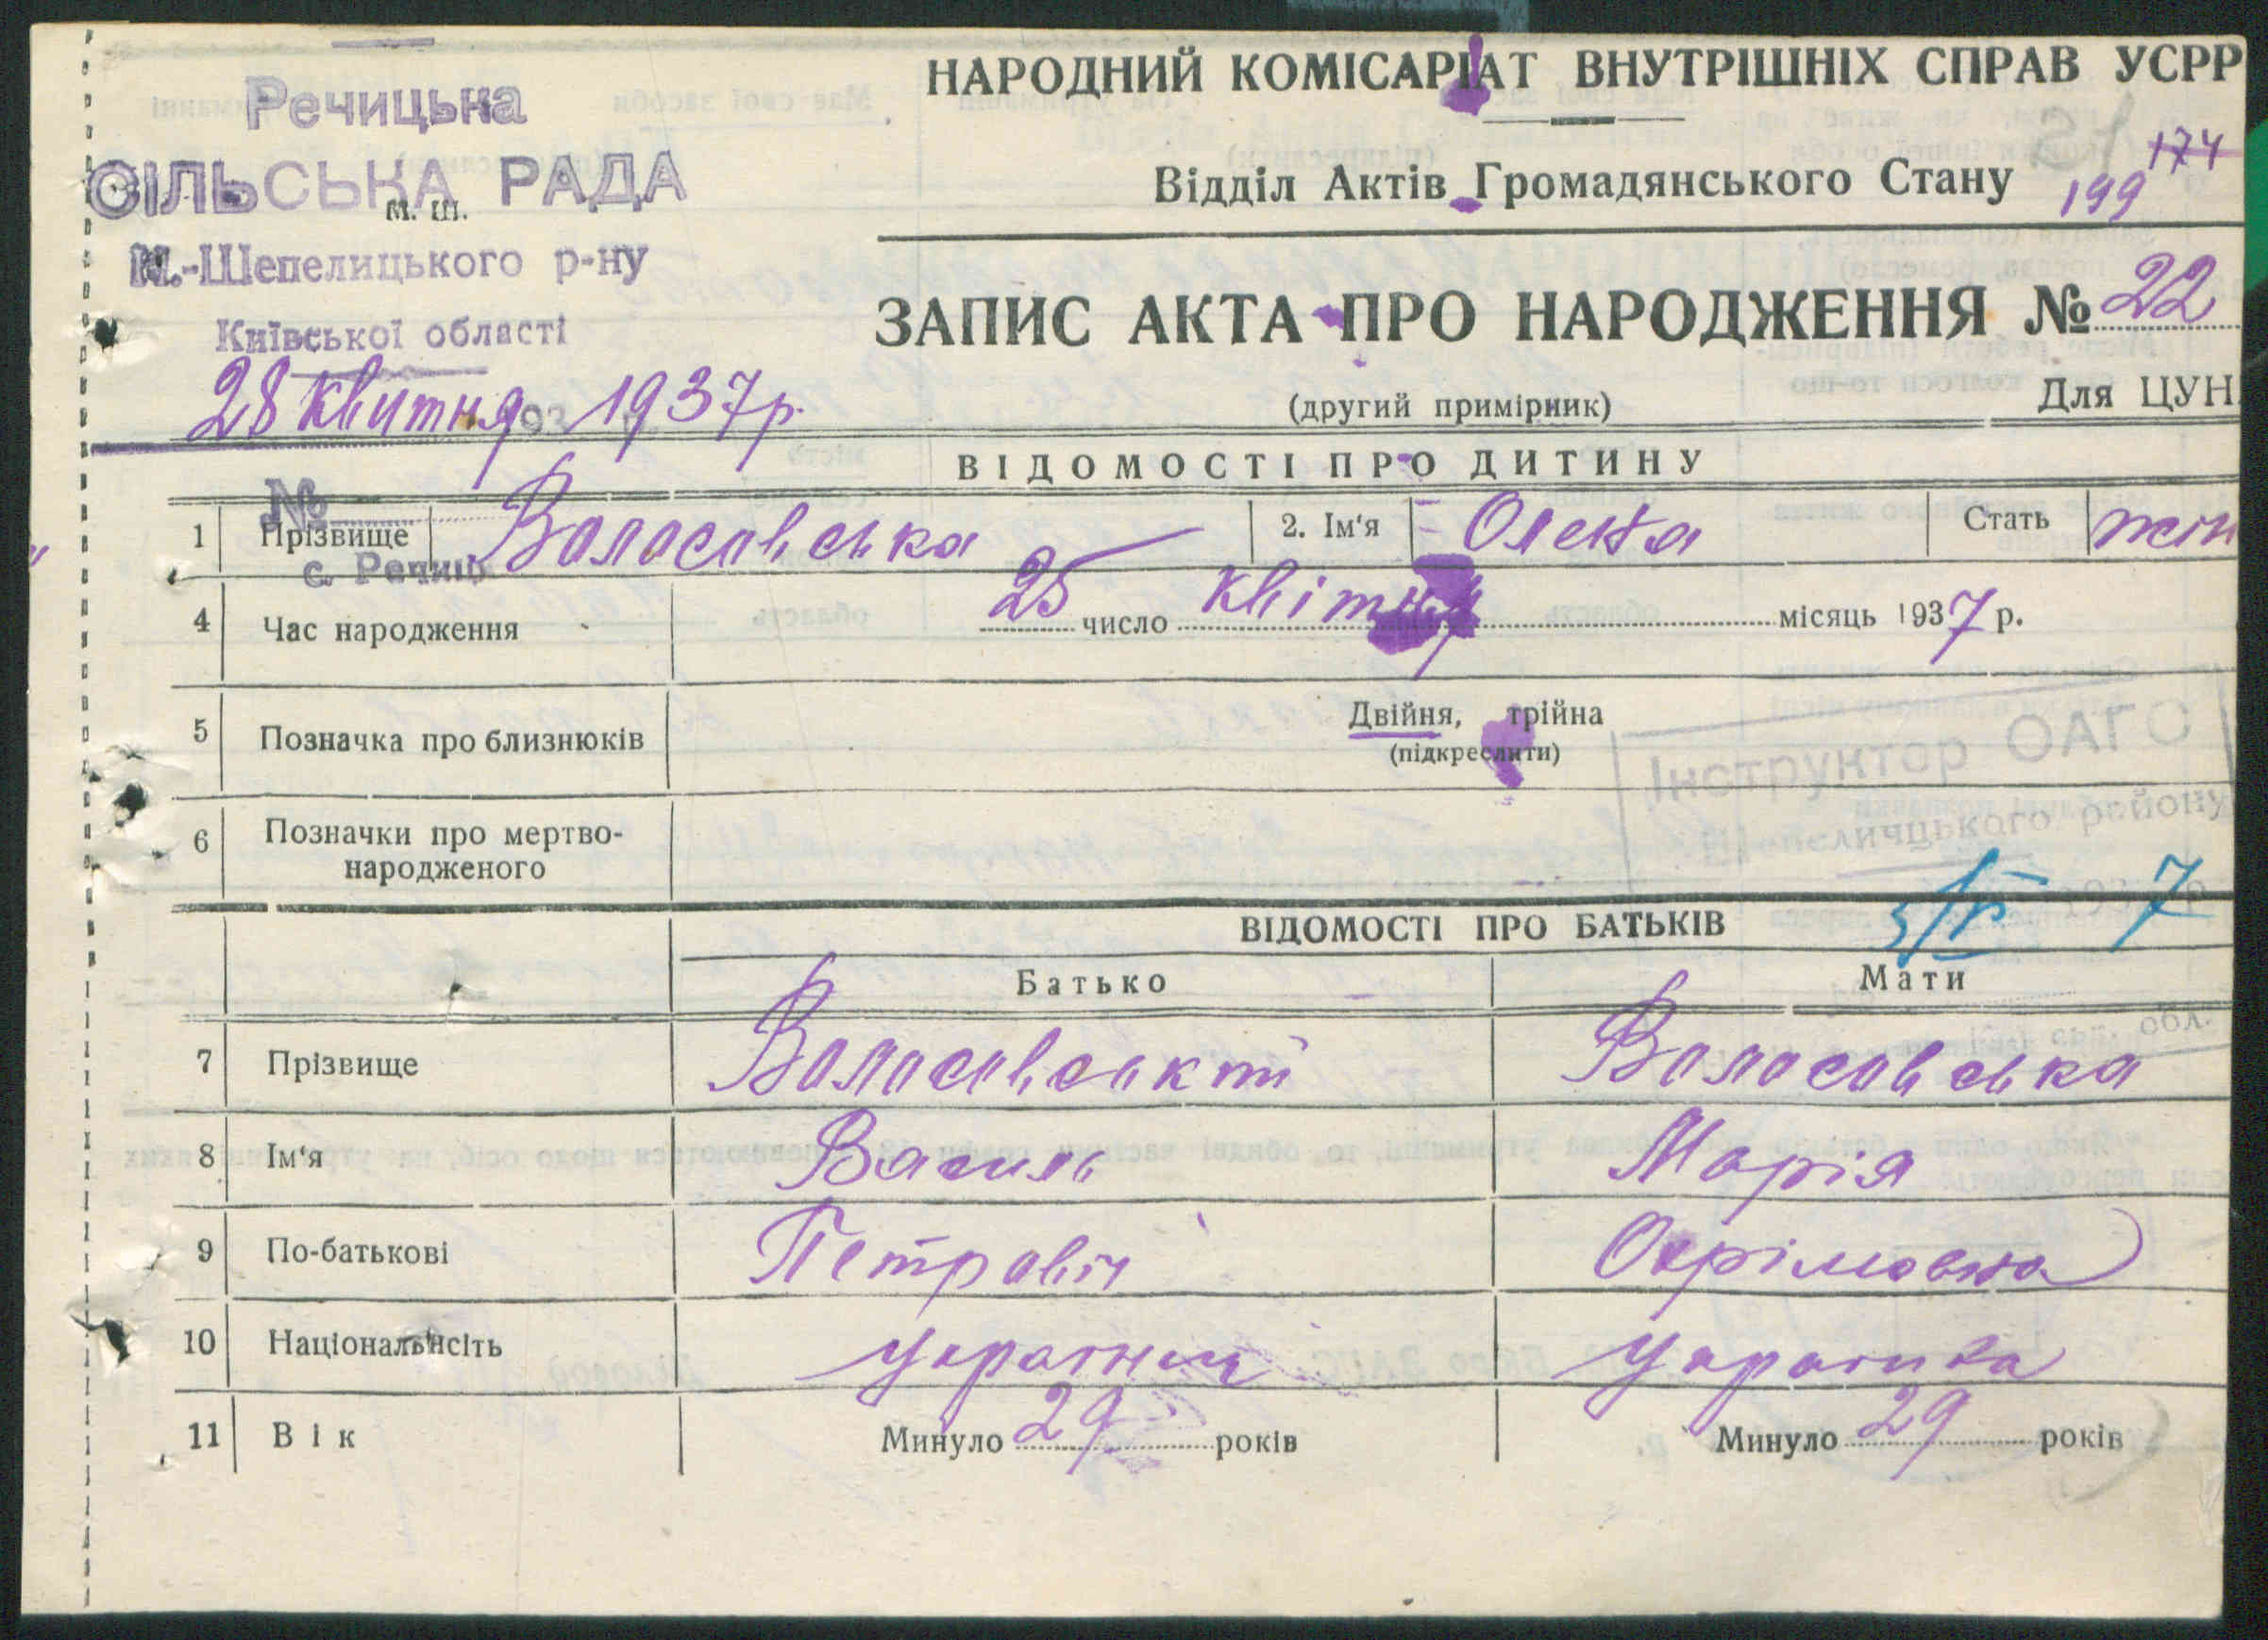 Речицька
СІЛЬСЬКА РАДА
м. ш.
М.-Шепелицького р-ну
Київської області
28 квитня 1937 р.
№
с. Речиц
НАРОДНИЙ КОМІСАРІАТ ВНУТРІШНІХ СПРАВ УСРР
Відділ Актів Громадянського Стану
174
199
ЗАПИС АКТА ПРО НАРОДЖЕННЯ № 22
(другий примірник)
Для ЦУН
ВІДОМОСТІ ПРО ДИТИНУ
1 Прізвище Воласовська 2. Ім'я Олена Стать жін
4 Час народження 25 число квітня місяць 1937 р.
5 Позначка про близнюків Двійня, трійна
(підкреслити)
Інструктор ОАГС
Шепеличцького району
6 Позначки про мертво-
народженого
7
ВІДОМОСТІ ПРО БАТЬКІВ
Батько Мати
7 Прізвище Воласовський Воласовська
8 Ім'я Василь Марія
9 По-батькові Петровіч Охрімовна
10 Національнсіть Українец Українка
11 Вік Минуло 29 років Минуло 29 років